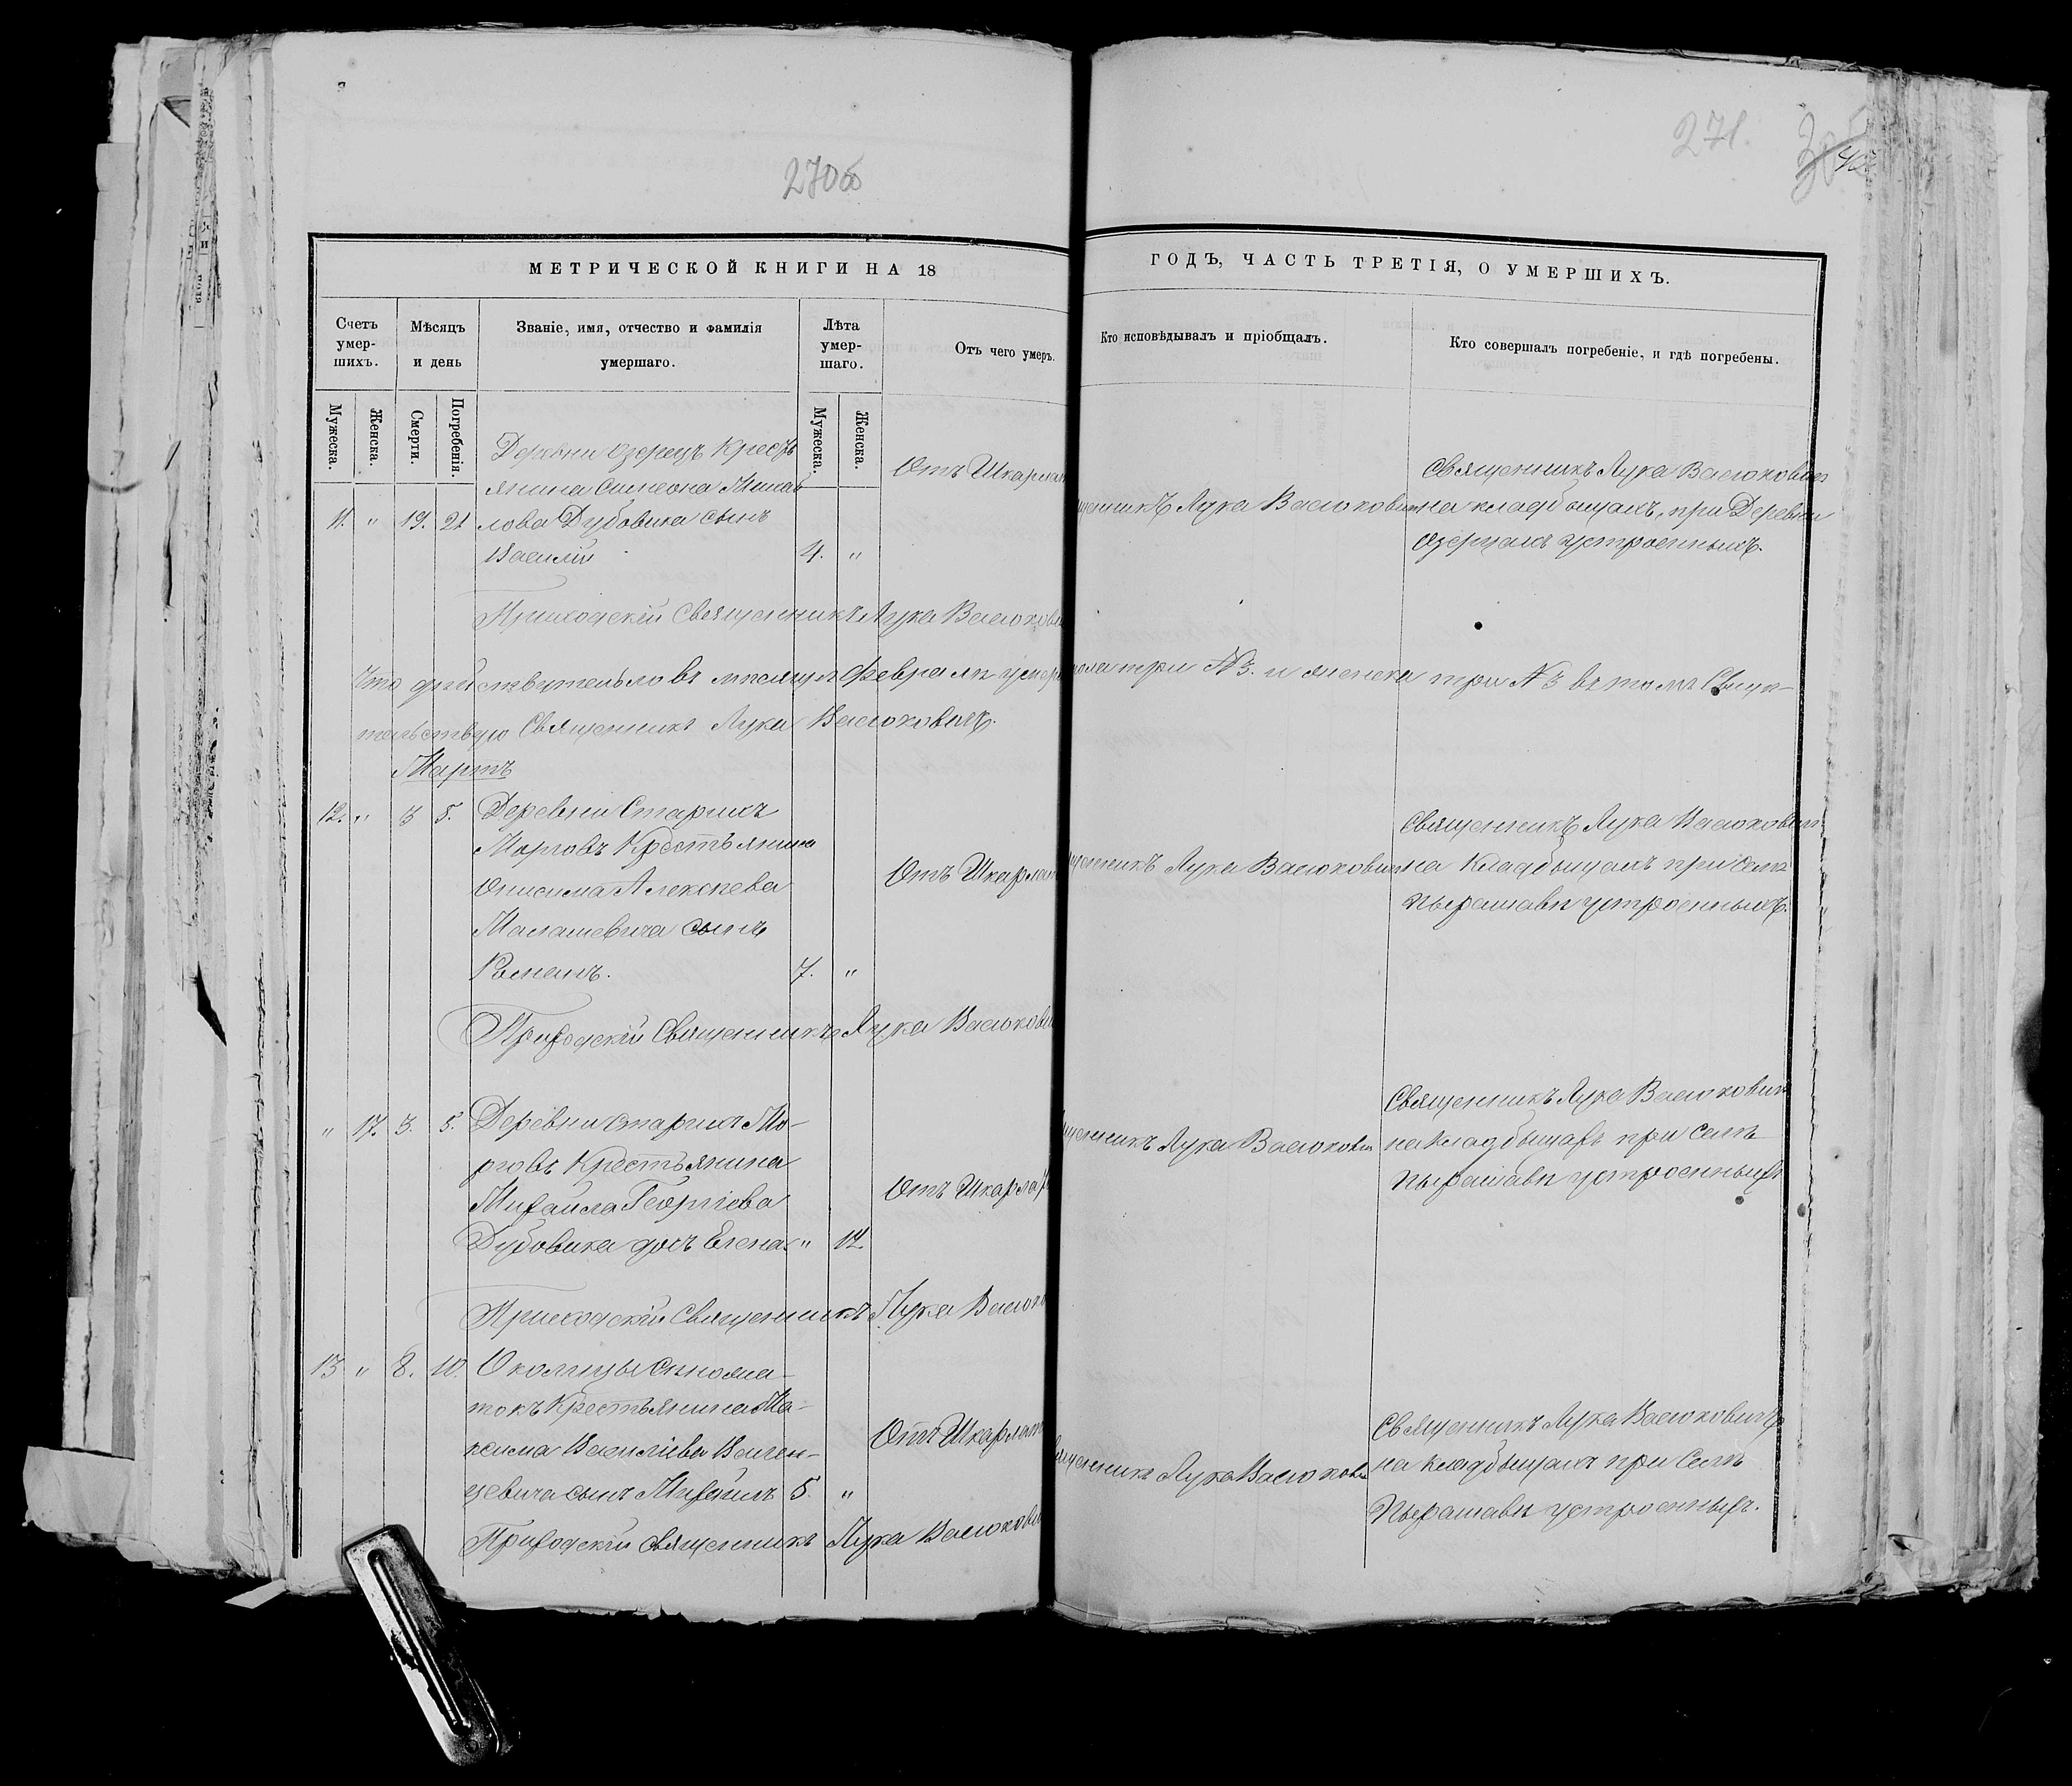 270об
271.
МЕТРИЧЕСКОЙ КНИГИ НА 18
ГОДЪ, ЧАСТЬ ТРЕТІЯ, О УМЕРШИХЪ.
Счетъ умер-шихъ.
Мѣсяцъ и день
Званіе, имя, отчество и фамилія умершаго.
Лѣта умер-шаго.
Отъ чего умеръ.
Кто исповѣдывалъ и пріобщалъ.
Кто совершалъ погребеніе, и гдѣ погребены.
Мужеска.
Женска.
Смерти.
Погребенія.
Мужеска.
Женска.
Деревни Озерецъ Кресть
янина Симеона Михай
11. " 19. 21 лова Дубовика сынъ
Василій 4. "
Отъ Шкарлат
щенникъ Лука Васюкович
Священникъ Лука Васюкович
на кладбищахъ, при Деревни
Озерцахъ устроенныхъ.
Приходскій Священникъ Лука Васюкови
Что действительно въ месяце Феврале умер
пола три №3. и женска три №3 въ томъ Свиде-
тельствую Священникъ Лука Васюковичъ.
Мартъ
12. " 3 5. Деревни Старыхъ
Морговъ Крестьянина
Онисима Алексеева
Малашевича сынъ
Романъ. 7. "
Отъ Шкарлат
щенникъ Лука Васюкович
Священникъ Лука Васюкович
на Кладбищахъ при селе
Пырашеве устроенныхъ.
Приходскій Священникъ Лука Васюкови
" 17. 3. 5. Деревни Старыхъ Мо-
рговъ Крестьянина
Михаила Георгіева
Дубовика дочь Елена " 12.
Отъ Шкарлат
щенникъ Лука Васюкови
Священникъ Лука Васюкович
на кладбищахъ при селе
Пырашеве устроенныхъ
Приходскій Священникъ Лука Васюко
13 " 8. 10. Околицы
токъ Крестьянина Ма-
ксима Василіева
цевича сынъ Михаилъ 5. "
Отъ Шкарлат
щенникъ Лука Васюкови
Священникъ Лука Васюковичъ
на кладбищахъ при Селе
Пырашеве устроенныхъ.
Приходскій Священникъ Лука Васюкови